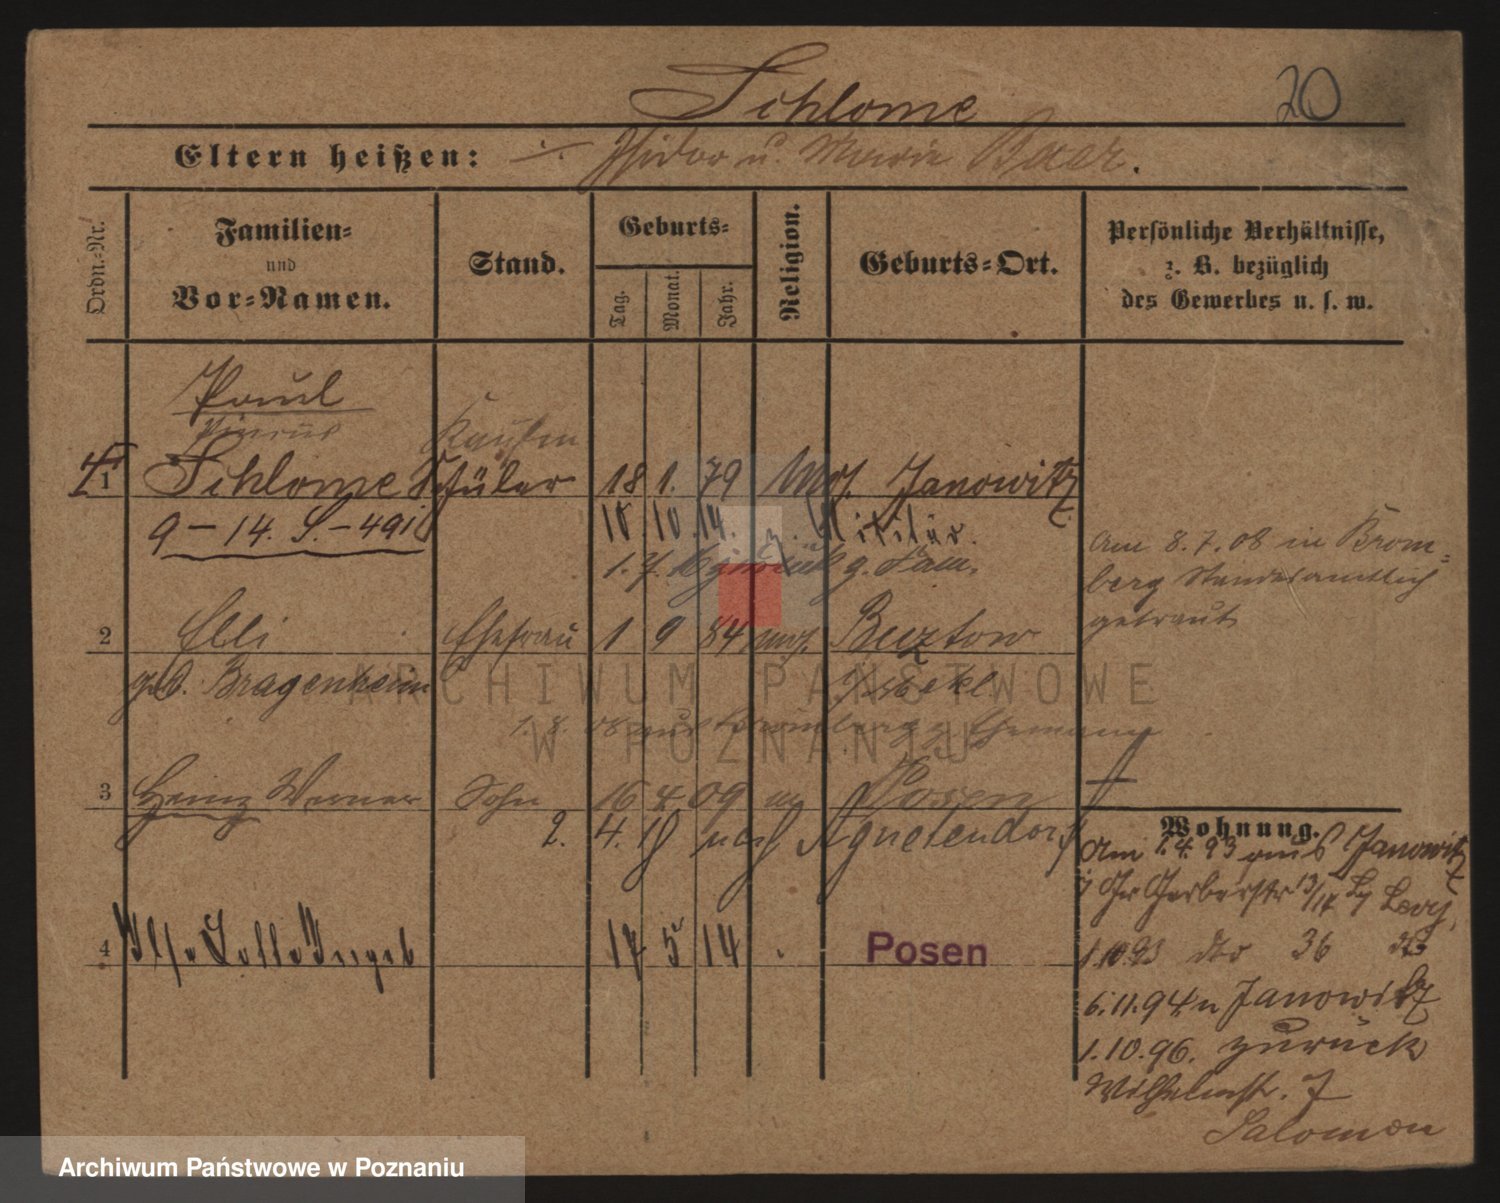 Schlome 20
Eltern heißen: Isidor u. Marie Baer.
Ordn.-Nr.
Familien- und Vor-Namen.
Stand.
Geburts-
Tag. Monat. Jahr.
Religion.
Geburts-Ort.
Persönliche Verhältnisse,
z. B. bezüglich
des Gewerbes u. s. w.
Paul
Pincus Kaufm
1 Schlome Schüler 18 1. 79 Mos. Janowitz
9 - 14. S. - 491
18 10 14. z. Militär.
1. 7. zurück z. Fam.
Am 8.7.08 in Brom-
berg Standesamtlich
getraut
2 Elli Ehefrau 1 9 84 mos.
geb.
1. 8. 08 aus Bromberg z. Ehemann
3 Heinz Werner Sohn 16 4 09 m Posen
2. 4. 18 nach Agnetendorf
4 Ilse Lotte Ingeb 17 5 14 Posen
Wohnung.
Am 1.4.93 aus Janowitz
Gr Gerberstr 13/14 Levy,
1.10.93 dto 36
6.11.94 n Janowitz
1.10.96. zurück
Wilhelmstr. 7
Salomon
ARCHIWUM PAŃSTWOWE
W POZNANIU
Archiwum Państwowe w Poznaniu